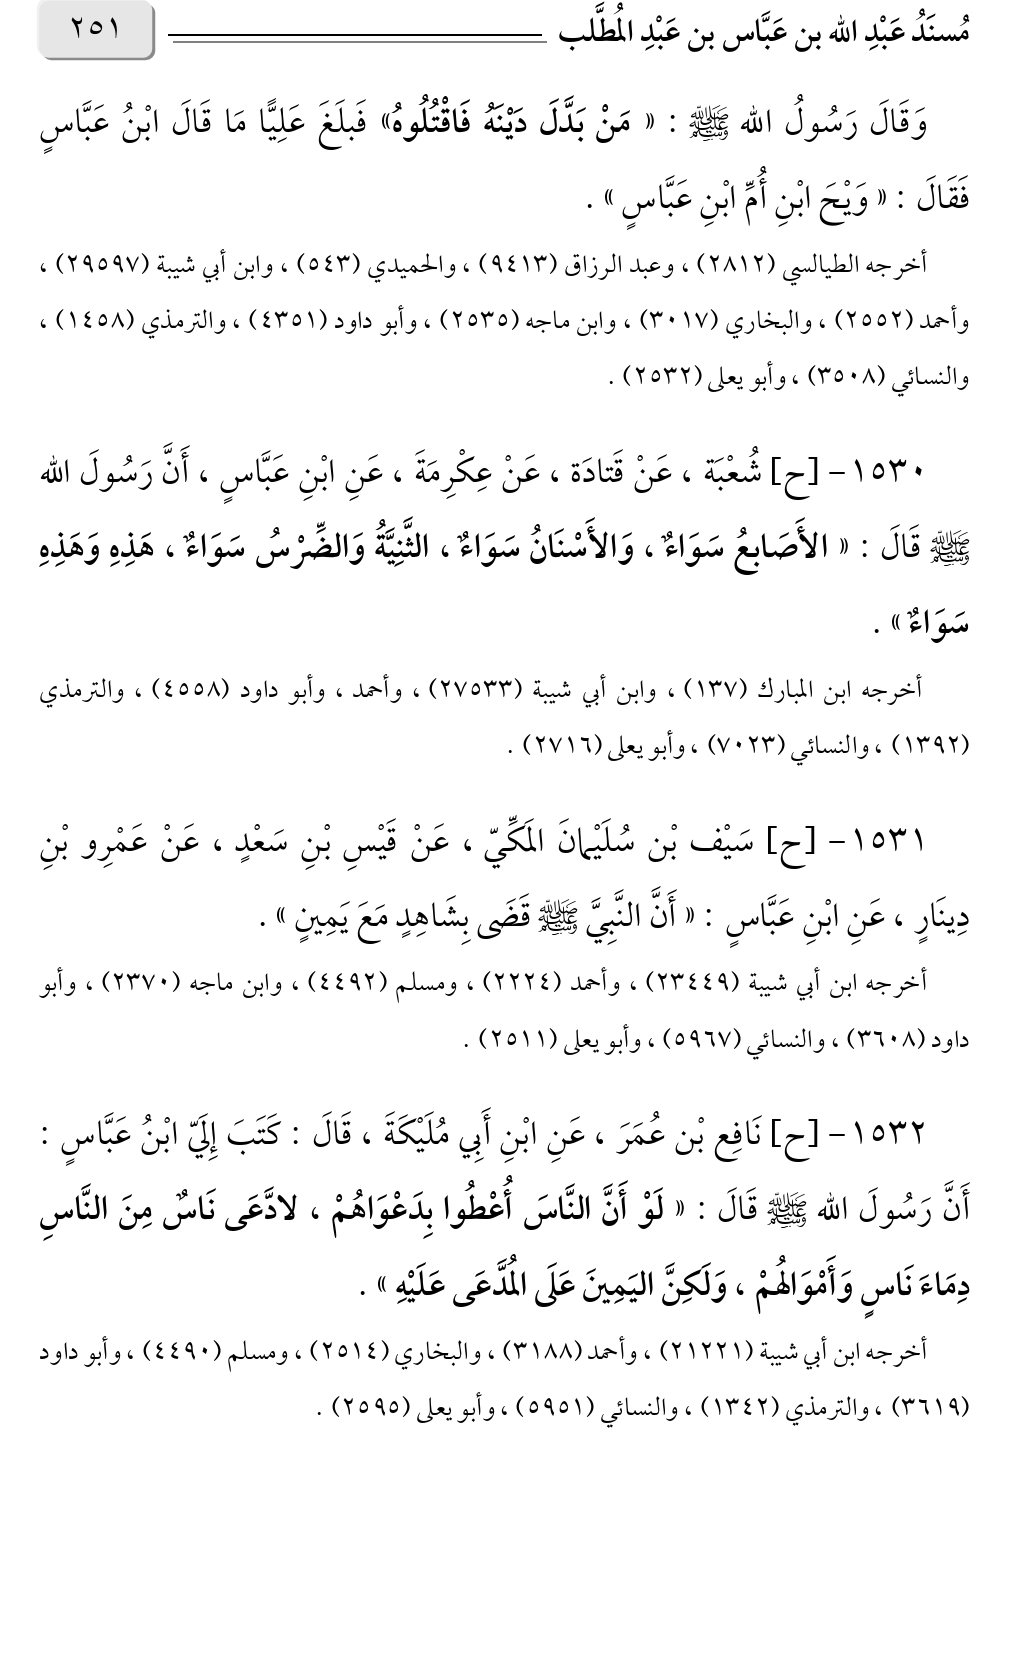 مُسنَدُ عَبْدِ الله بن عَبَّاس بن عَبْدِ المُطَّلب ٢٥١
وَقَالَ رَسُولُ الله ﷺ : « مَنْ بَدَّلَ دَيْنَهُ فَاقْتُلُوهُ» فَبلَغَ عَلِيًّا مَا قَالَ ابْنُ عَبَّاسٍ
فَقَالَ : « وَيْحَ ابْنِ أُمِّ ابْنِ عَبَّاسٍ » .
أخرجه الطيالسي (٢٨١٢) ، وعبد الرزاق (٩٤١٣) ، والحميدي (٥٤٣) ، وابن أبي شيبة (٢٩٥٩٧) ،
وأحمد (٢٥٥٢) ، والبخاري (٣٠١٧) ، وابن ماجه (٢٥٣٥) ، وأبو داود (٤٣٥١) ، والترمذي (١٤٥٨) ،
والنسائي (٣٥٠٨) ، وأبو يعلى (٢٥٣٢) .
١٥٣٠ – [ح] شُعْبَة ، عَنْ قَتادَة ، عَنْ عِكْرِمَةَ ، عَنِ ابْنِ عَبَّاسٍ ، أَنَّ رَسُولَ الله
ﷺ قَالَ : « الأَصَابعُ سَوَاءٌ ، وَالأَسْنَانُ سَوَاءٌ ، الثَّنِيَّةُ وَالضِّرْسُ سَوَاءٌ ، هَذِهِ وَهَذِهِ
سَوَاءٌ » .
أخرجه ابن المبارك (١٣٧) ، وابن أبي شيبة (٢٧٥٣٣) ، وأحمد ، وأبو داود (٤٥٥٨) ، والترمذي
(١٣٩٢) ، والنسائي (٧٠٢٣) ، وأبو يعلى (٢٧١٦) .
١٥٣١ – [ح] سَيْف بْن سُلَيْمانَ المَكِّيّ ، عَنْ قَيْسِ بْنِ سَعْدٍ ، عَنْ عَمْرِو بْنِ
دِينَارٍ ، عَنِ ابْنِ عَبَّاسٍ : « أَنَّ النَّبِيَّ ﷺ قَضَى بِشَاهِدٍ مَعَ يَمِينٍ » .
أخرجه ابن أبي شيبة (٢٣٤٤٩) ، وأحمد (٢٢٢٤) ، ومسلم (٤٤٩٢) ، وابن ماجه (٢٣٧٠) ، وأبو
داود (٣٦٠٨) ، والنسائي (٥٩٦٧) ، وأبو يعلى (٢٥١١) .
١٥٣٢ – [ح] نَافِع بْن عُمَرَ ، عَنِ ابْنِ أَبِي مُلَيْكَةَ ، قَالَ : كَتَبَ إِلَيّ ابْنُ عَبَّاسٍ :
أَنَّ رَسُولَ الله ﷺ قَالَ : « لَوْ أَنَّ النَّاسَ أُعْطُوا بِدَعْوَاهُمْ ، لادَّعَى نَاسٌ مِنَ النَّاسِ
دِمَاءَ نَاسٍ وَأَمْوَالهُمْ ، وَلَكِنَّ اليَمِينَ عَلَى المُدَّعَى عَلَيْهِ » .
أخرجه ابن أبي شيبة (٢١٢٢١) ، وأحمد (٣١٨٨) ، والبخاري (٢٥١٤) ، ومسلم (٤٤٩٠) ، وأبو داود
(٣٦١٩) ، والترمذي (١٣٤٢) ، والنسائي (٥٩٥١) ، وأبو يعلى (٢٥٩٥) .